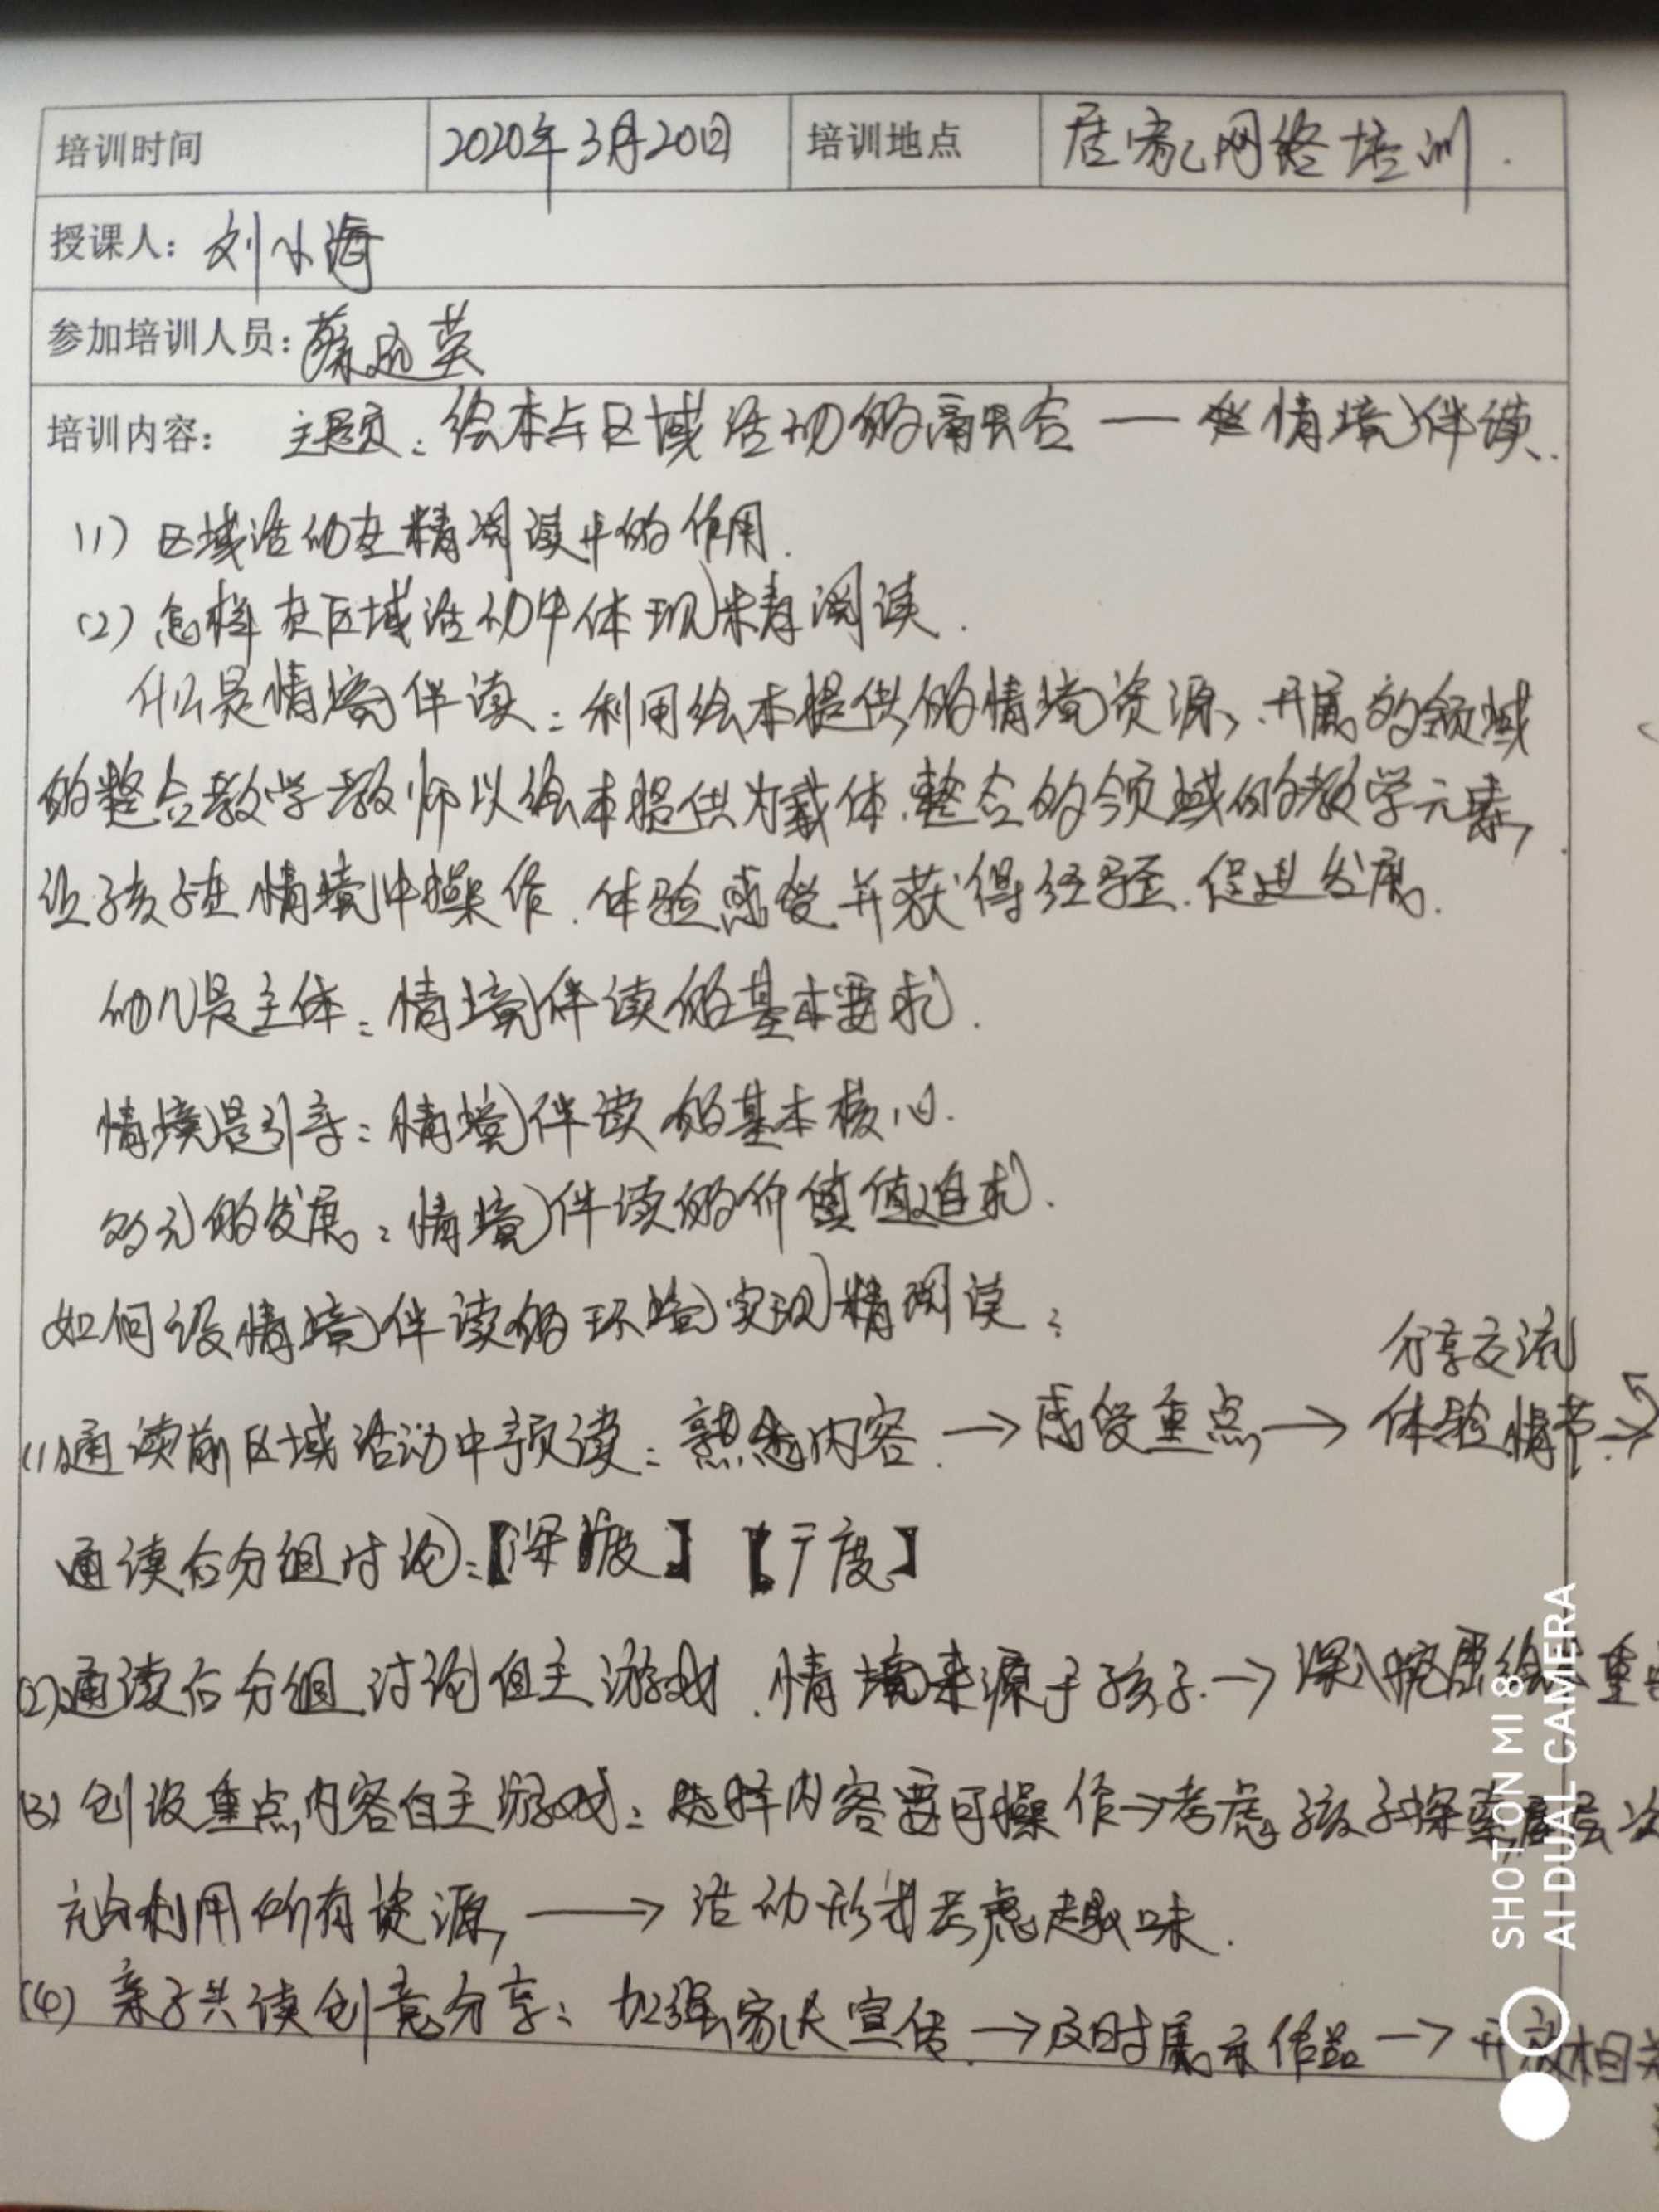 培训时间 2020年3月20日 培训地点 居家网络培训.
授课人：刘小海
参加培训人员：蔡英
培训内容： 主题：绘本与区域活动的融合——情境伴读.
(1) 区域活动在精阅读中的作用.
(2) 怎样在区域活动中体现精阅读.
什么是情境伴读：利用绘本提供的情境资源，开展多领域
的整合教学教师以绘本提供为载体.整合多领域的教学元素，
让孩子在情境中操作.体验感受并获得经验.促进发展.
幼儿是主体：情境伴读的基本要求.
情境是引导：情境伴读的基本核心.
多元的发展：情境伴读的价值值追求.
如何设情境伴读的环境实现精阅读：
分享交流
(1)通读前区域活动中预读：熟悉内容.→感受重点→体验情节.→
通读后分组讨论：【深度】【广度】
(2)通读后分组讨论自主游戏.情境来源于孩子.→深入挖绘本重
(3) 创设重点内容自主游戏：选择内容要可操作→考虑孩子探索层次
充分利用所有资源，→活动形式考虑趣味.
(4) 亲子共读创意分享：加强家长宣传.→及时展示作品→开放相关
SHOT ON MI 8
AI DUAL CAMERA